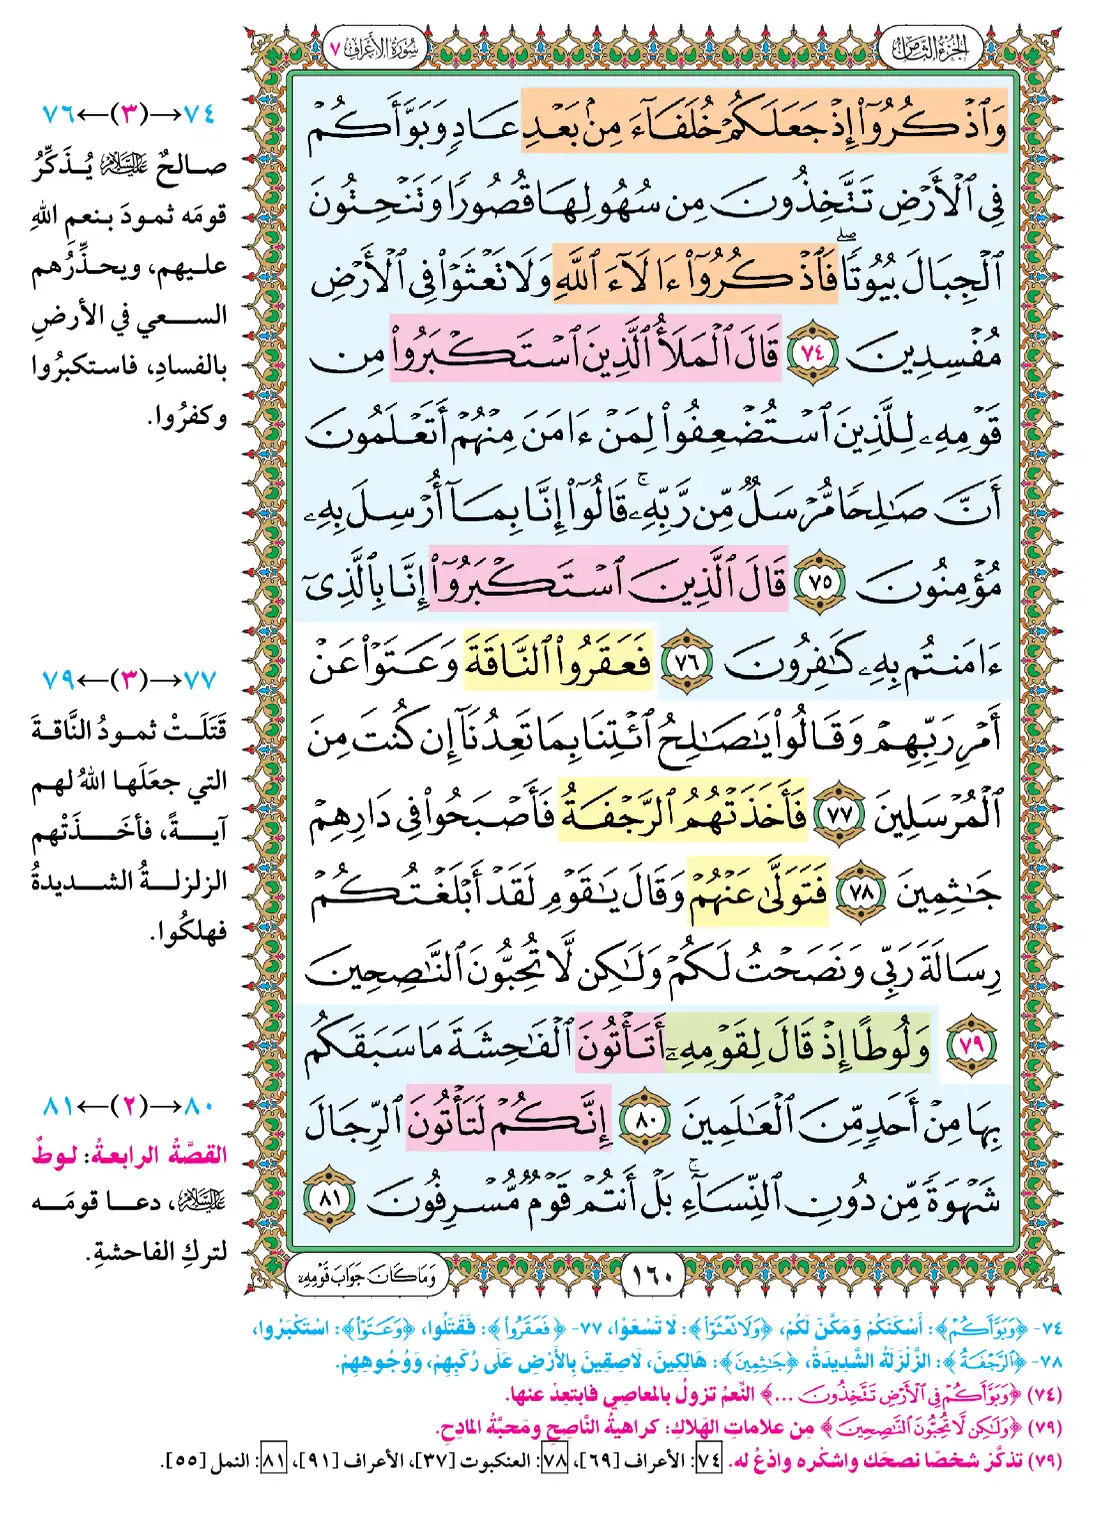 الجزء الثامن
سورة الأعراف ٧
وَٱذْكُرُوٓا۟ إِذْ جَعَلَكُمْ خُلَفَآءَ مِنۢ بَعْدِ عَادٍ وَبَوَّأَكُمْ
فِى ٱلْأَرْضِ تَتَّخِذُونَ مِن سُهُولِهَا قُصُورًا وَتَنْحِتُونَ
ٱلْجِبَالَ بُيُوتًا ۖ فَٱذْكُرُوٓا۟ ءَالَآءَ ٱللَّهِ وَلَا تَعْثَوْا۟ فِى ٱلْأَرْضِ
مُفْسِدِينَ ٧٤ قَالَ ٱلْمَلَأُ ٱلَّذِينَ ٱسْتَكْبَرُوا۟ مِن
قَوْمِهِۦ لِلَّذِينَ ٱسْتُضْعِفُوا۟ لِمَنْ ءَامَنَ مِنْهُمْ أَتَعْلَمُونَ
أَنَّ صَـٰلِحًا مُّرْسَلٌ مِّن رَّبِّهِۦ ۚ قَالُوٓا۟ إِنَّا بِمَآ أُرْسِلَ بِهِۦ
مُؤْمِنُونَ ٧٥ قَالَ ٱلَّذِينَ ٱسْتَكْبَرُوٓا۟ إِنَّا بِٱلَّذِىٓ
ءَامَنتُم بِهِۦ كَـٰفِرُونَ ٧٦ فَعَقَرُوا۟ ٱلنَّاقَةَ وَعَتَوْا۟ عَنْ
أَمْرِ رَبِّهِمْ وَقَالُوا۟ يَـٰصَـٰلِحُ ٱئْتِنَا بِمَا تَعِدُنَآ إِن كُنتَ مِنَ
ٱلْمُرْسَلِينَ ٧٧ فَأَخَذَتْهُمُ ٱلرَّجْفَةُ فَأَصْبَحُوا۟ فِى دَارِهِمْ
جَـٰثِمِينَ ٧٨ فَتَوَلَّىٰ عَنْهُمْ وَقَالَ يَـٰقَوْمِ لَقَدْ أَبْلَغْتُكُمْ
رِسَالَةَ رَبِّى وَنَصَحْتُ لَكُمْ وَلَـٰكِن لَّا تُحِبُّونَ ٱلنَّـٰصِحِينَ
٧٩ وَلُوطًا إِذْ قَالَ لِقَوْمِهِۦٓ أَتَأْتُونَ ٱلْفَـٰحِشَةَ مَا سَبَقَكُم
بِهَا مِنْ أَحَدٍ مِّنَ ٱلْعَـٰلَمِينَ ٨٠ إِنَّكُمْ لَتَأْتُونَ ٱلرِّجَالَ
شَهْوَةً مِّن دُونِ ٱلنِّسَآءِ ۚ بَلْ أَنتُمْ قَوْمٌ مُّسْرِفُونَ ٨١
١٦٠
وَمَا كَانَ جَوَابَ قَوْمِهِۦ
٧٤→(٣)←٧٦
صالحٌ عليه السلام يُذَكِّرُ
قومَه ثمودَ بنعمِ اللهِ
عليهم، ويحذِّرُهم
السعي في الأرضِ
بالفسادِ، فاستكبرُوا
وكفرُوا.
٧٧→(٣)←٧٩
قَتَلَتْ ثمودُ النَّاقةَ
التي جعَلَها اللهُ لهم
آيةً، فأخَذَتْهم
الزلزلةُ الشديدةُ
فهلكُوا.
٨٠→(٢)←٨١
القصَّةُ الرابعةُ: لوطٌ
عليه السلام، دعا قومَه
لتركِ الفاحشةِ.
٧٤- ﴿وَبَوَّأَكُمْ﴾: أَسْكَنَكُمْ وَمَكَّنَ لَكُمْ، ﴿وَلَا تَعْثَوْا۟﴾: لَا تَسْعَوْا، ٧٧- ﴿فَعَقَرُوا۟﴾: فَقَتَلُوا، ﴿وَعَتَوْا۟﴾: اسْتَكْبَرُوا،
٧٨- ﴿ٱلرَّجْفَةُ﴾: الزَّلْزَلَةُ الشَّدِيدَةُ، ﴿جَـٰثِمِينَ﴾: هَالِكِينَ، لَاصِقِينَ بِالأَرْضِ عَلَى رُكَبِهِمْ، وَوُجُوهِهِمْ.
(٧٤) ﴿وَبَوَّأَكُمْ فِى ٱلْأَرْضِ تَتَّخِذُونَ ...﴾ النِّعمُ تزولُ بالمعاصِي فابتعِدْ عنها.
(٧٩) ﴿وَلَـٰكِن لَّا تُحِبُّونَ ٱلنَّـٰصِحِينَ﴾ مِن علاماتِ الهَلاكِ: كراهيةُ النَّاصِحِ ومَحبَّةُ المَادِحِ.
(٧٩) تذكَّرْ شخصًا نصحَك واشكْره وادْعُ له. ٧٤: الأعراف [٦٩]، ٧٨: العنكبوت [٣٧]، الأعراف [٩١]، ٨١: النمل [٥٥].